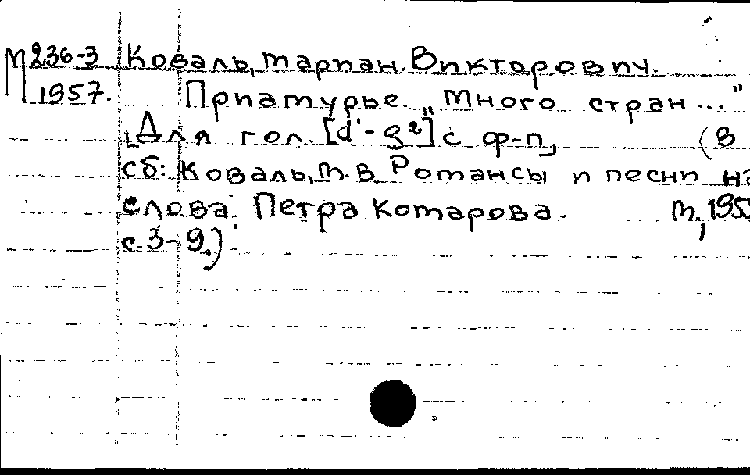 М 236-3 Коваль, Мариан Викторович.
1957. Приамурье. "Много стран..."
[Для гол. [d¹-g²] с ф-п, (В
сб: Коваль, М. В. Романсы и песни на
слова Петра Комарова. М., 195
с. 3-9.)